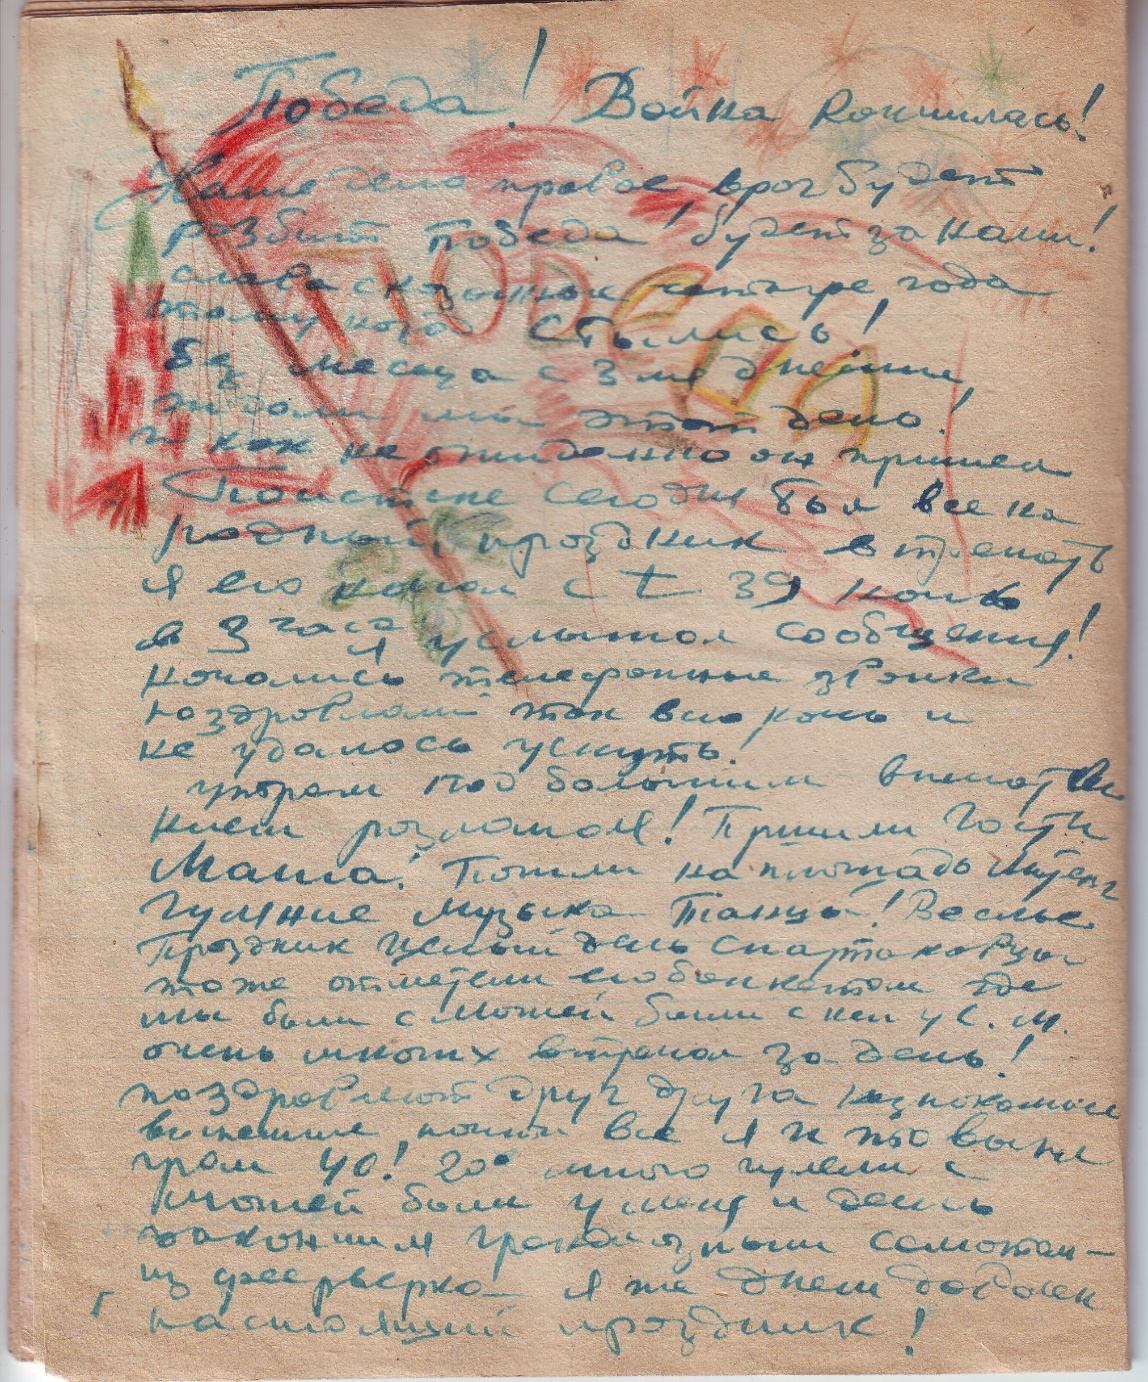 Победа! Война кончилась!
Наше дело правое, враг будет
разбит победа будет за нами!
слова сказанные четыре года
тому назад сбылись!
Без месяца с 3 мя днями,
ждали мы этот день!
и как неожиданно он пришел
Поистине сегодня был все на
родный праздник встречать
я его начал с t 39 ночь
в 3 часа я услышал сообщения!
начались телефонные звонки
поздравлали так всю ночь и
не удалось уснуть!
утром под большим впечатле
нием Пришли гости
Маша! Пошли на площадь
гуляние музыка танцы! Веселье
Праздник целый день спартаковцы
тоже отметели его банкетом где
мы были с Машей были с ней у С. М.
очень многих встречал за день!
поздравляют друг друга незнакомые
выпевшие, почти все я и то выпи
грам 40! 20° много гуляли с
Машей были у меня и день
закончили грандиозными салютом
из феерверка я же днем доволен
настоящий праздник!
ПОБЕДА